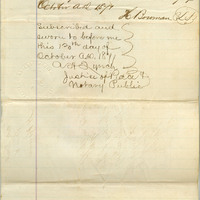 October
H. Bowman
Subscribed and
sworn to before me
this day of
October A.D. 18
A. H. Lynch
Justice of Peace &
Notary Public